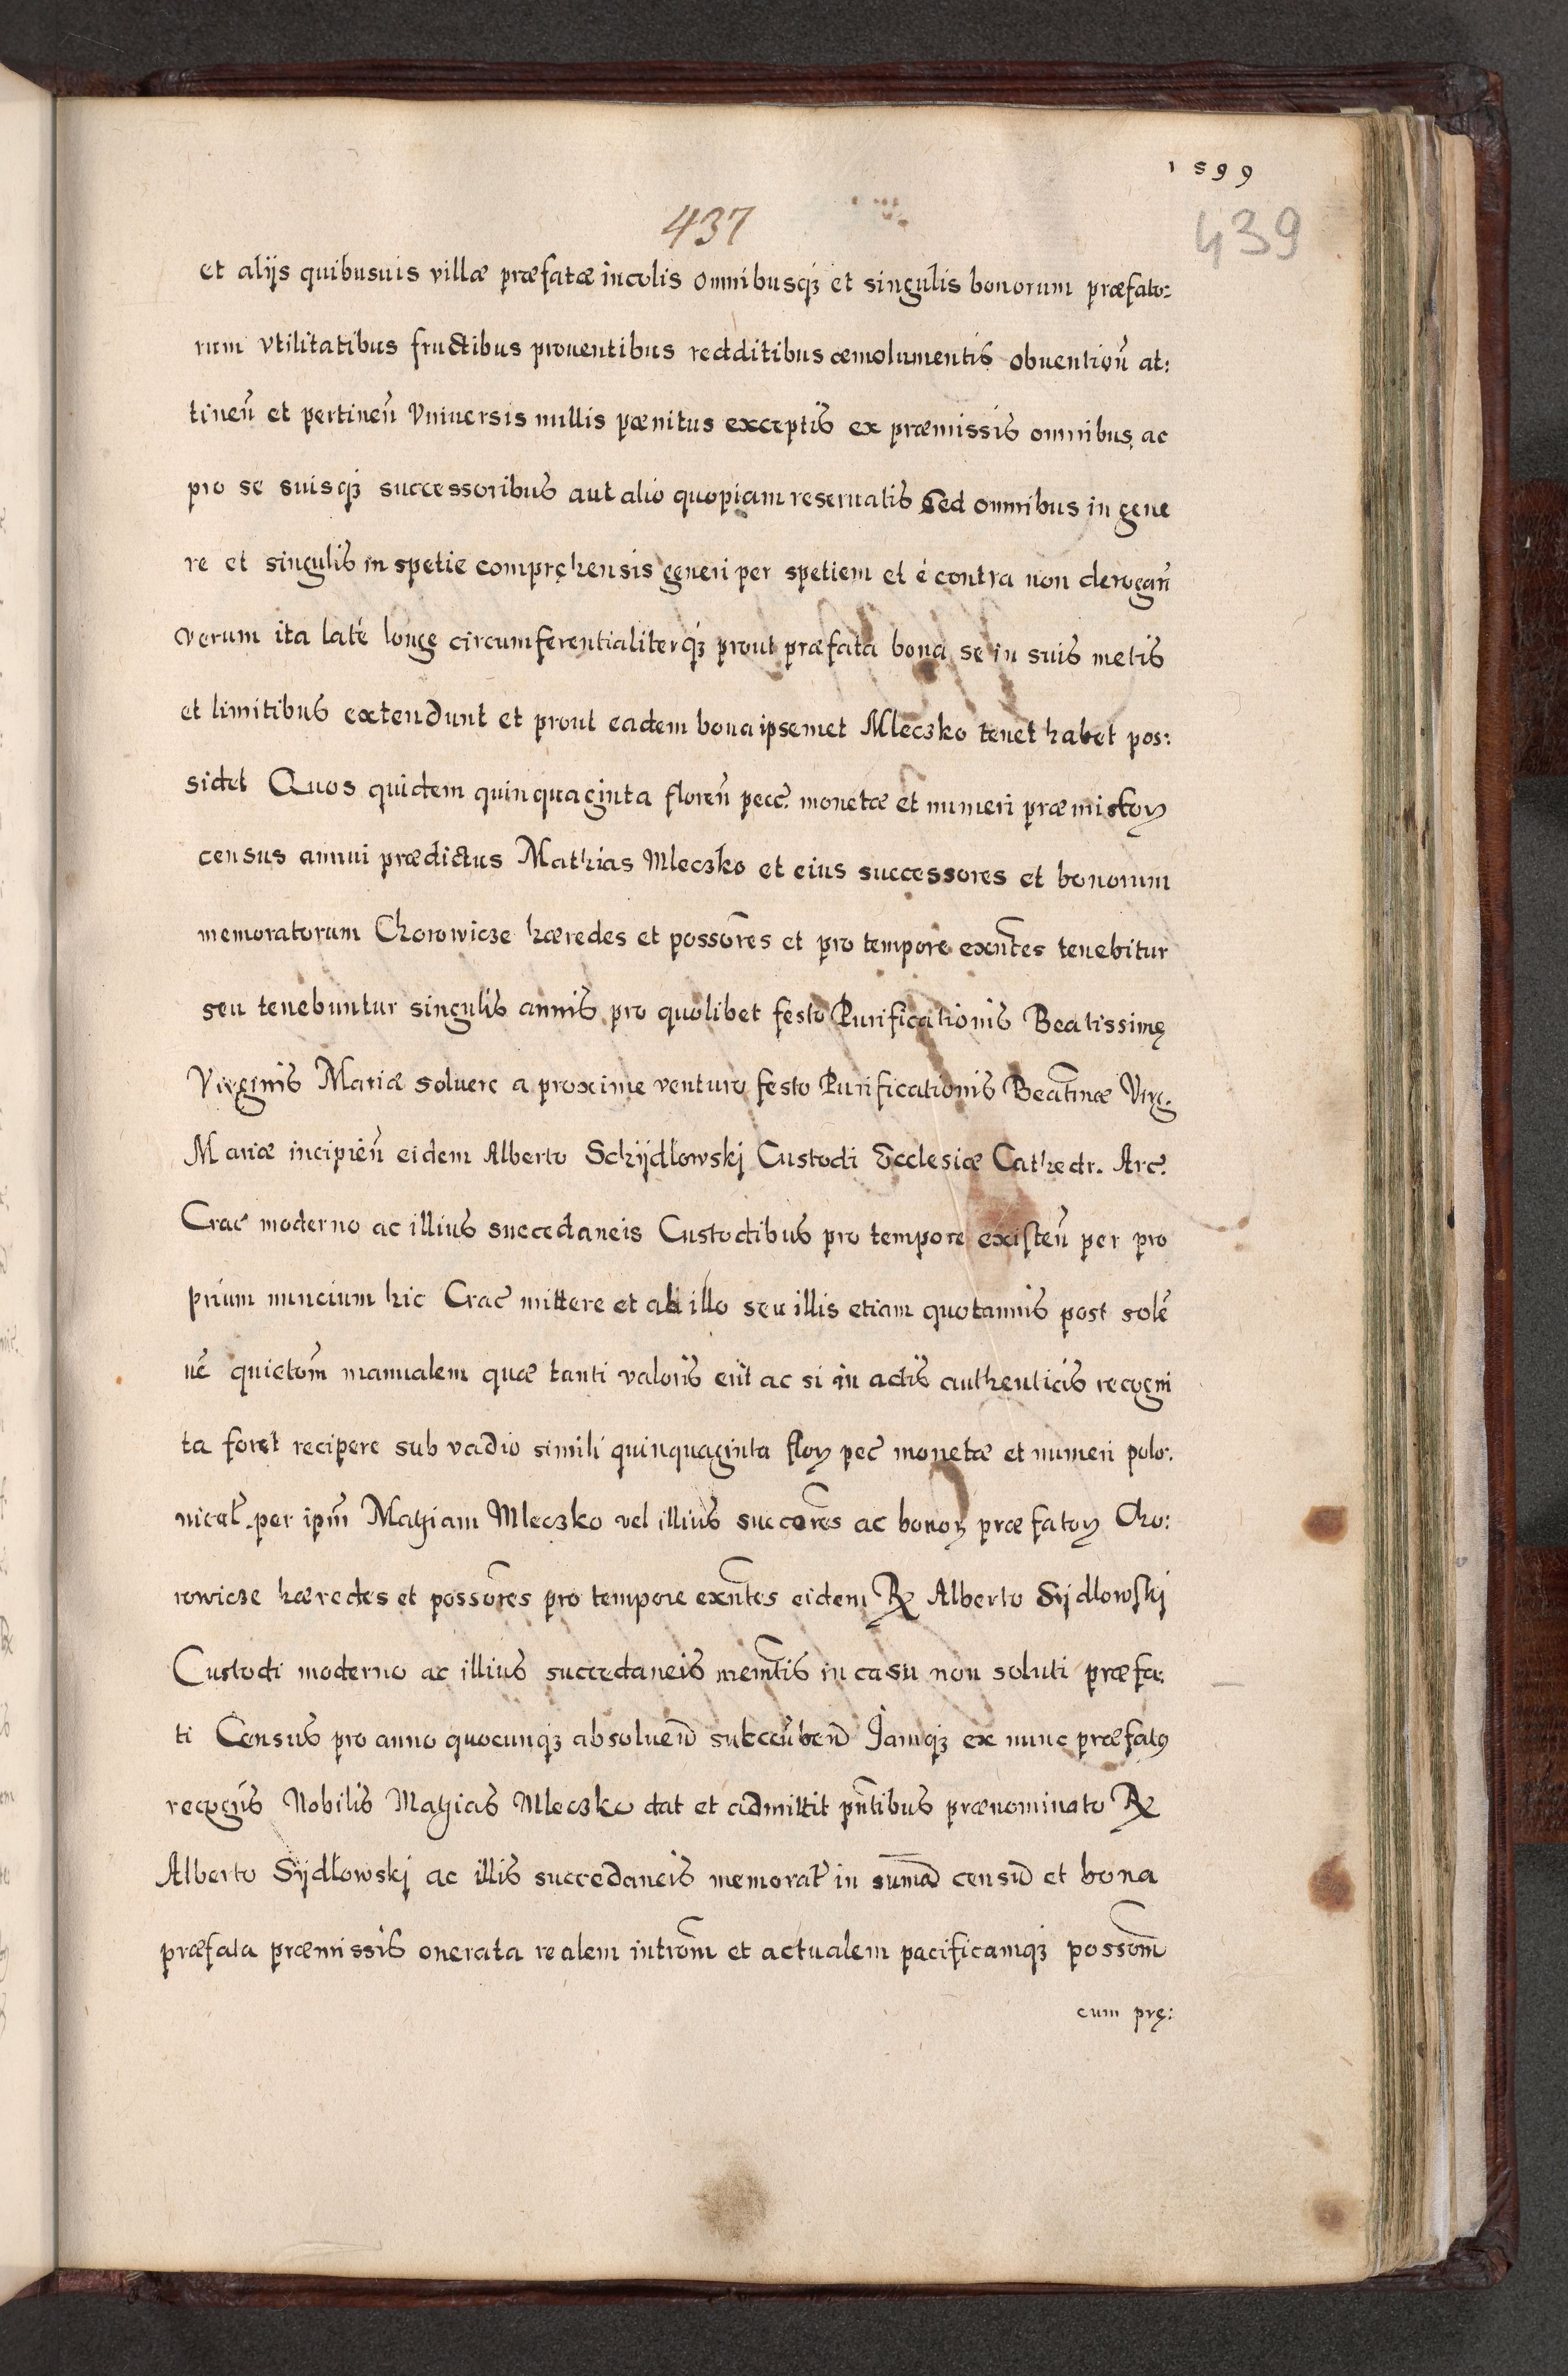 1599
437
439
et alijs quibusuis villæ præfatæ incolis omnibusqꝫ et singulis bonorum præfato:
rum vtilitatibus fructibus prouentibus redditibus æmolumentis obuentioñ at:
tineñ et pertineñ Vniuersis nullis pænitus exceptis ex præmissis omnibus ac
pro se suisqꝫ successoribus aut alio quopiam reseruatis Sed omnibus in gene
re et singulis in spetie compręhensis generi per spetiem et è contra non derogañ
verum ita latè longe circumferentialiterqꝫ prout præfata bona se in suis metis
et limitibus extendunt et prout eadem bona ipsemet Mleczko tenet habet pos:
sidet Quos quidem quinquaginta floreñ pecc̃. monetæ et numeri præmistoꝝ
census annui prædictus Mathias Mleczko et eius successores et bonorum
memoratorum Chorowicze hæredes et possōres et pro tempore exñtes tenebitur
seu tenebuntur singulis annis pro quolibet festo Purificationis Beatissimę
Virginis Mariæ soluere a proxime venturo festo Purificationis Beatm̃æ Virg.
Mariæ incipieñ eidem Alberto Schijdłowskj Custodi Ecclesiæ Cathedr. Arc̃.
Crac̃ moderno ac illius succedaneis Custodibus pro tempore existeñ per pro
prium nuncium hic Crac̃ mittere et ab illo seu illis etiam quotannis post solẽ
nẽ quietom̃ manualem quæ tanti valoris erit ac si in actis authenticis recogni
ta foret recipere sub vadio simili quinquaginta floꝝ pec̃ monetæ et numeri polo:
nical̃. per ipm̃ Mathiam Mleczko vel illius succōres ac bonoꝝ præfatoꝝ Cho:
rowicze hæredes et possōres pro tempore exñtes eidem R Alberto Sijdlowskj
Custodi moderno ac illius succedaneis mem̃tis in casu non soluti præfa:
ti Census pro anno quocunqꝫ absolueñ succũbeñ Jamqꝫ ex nunc præfatꝰ
recogñs Nobilis Mathias Mleczko dat et admittit pñtibus prænominato R
Alberto Sijdłowskj ac illis succedaneis memorat̃ in sum̃ã censũ et bona
præfata præmissis onerata realem introm̃ et actualem pacificamqꝫ possom̃
cum prę: